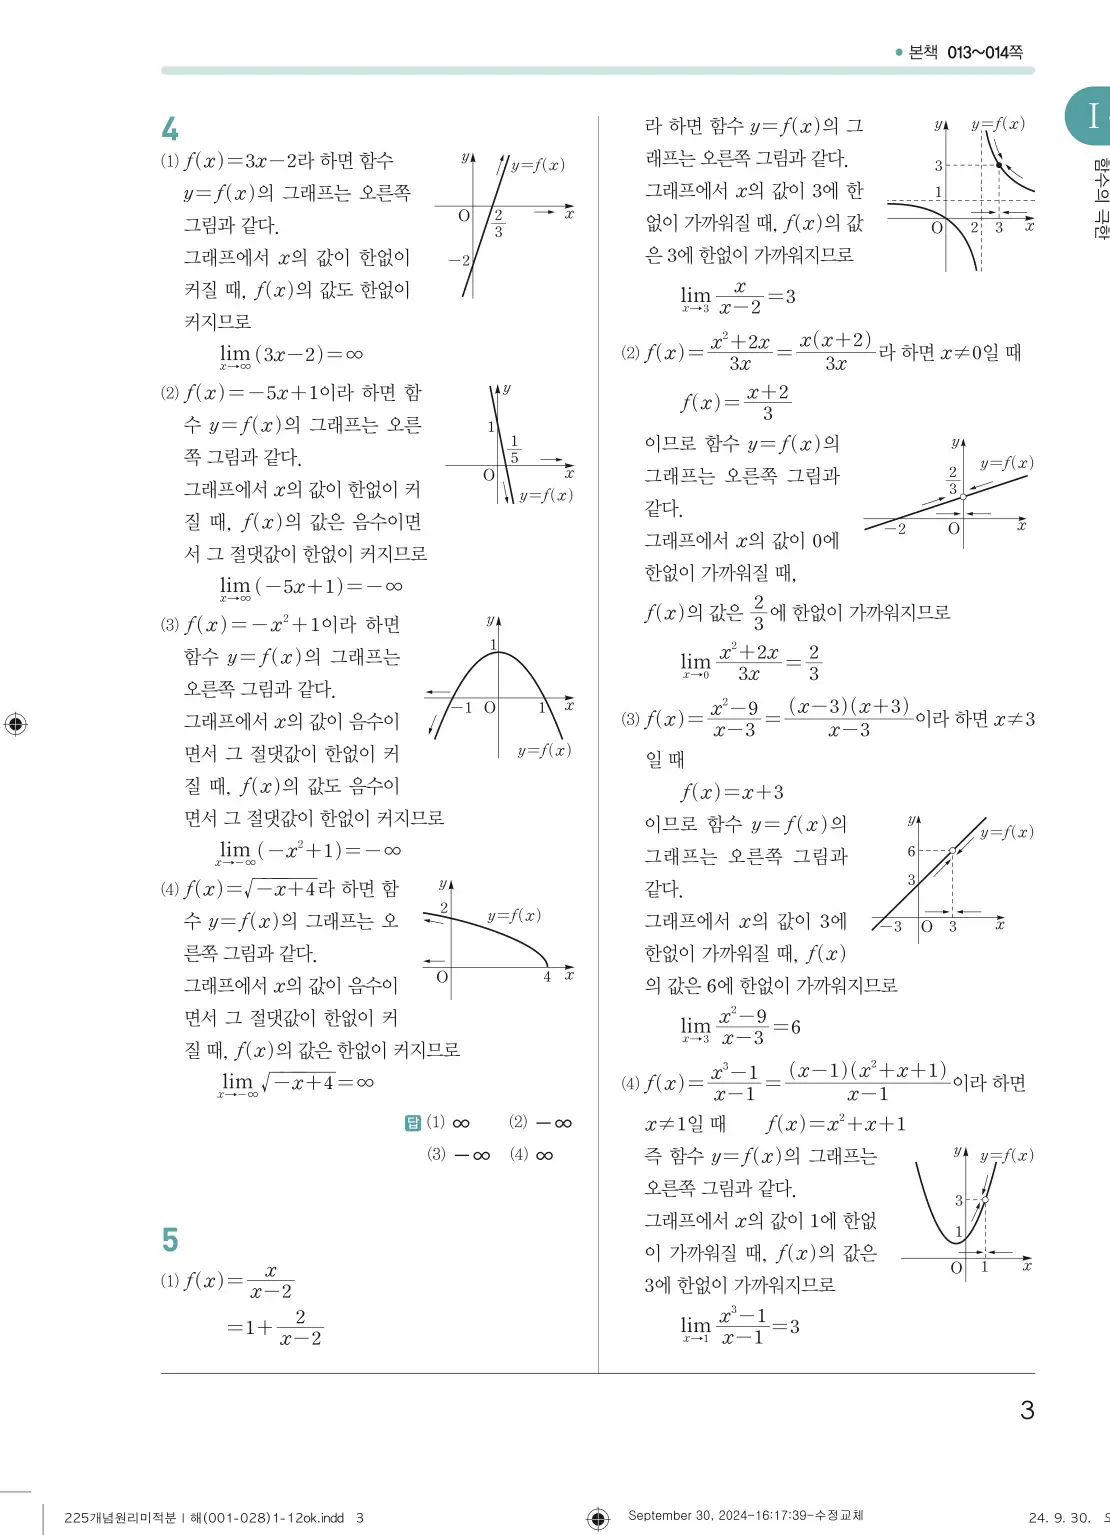 ● 본책 013~014쪽
I
함수의 극한
4
⑴ f(x)=3x-2라 하면 함수
y=f(x)의 그래프는 오른쪽
그림과 같다.
그래프에서 x의 값이 한없이
커질 때, f(x)의 값도 한없이
커지므로
lim_{x→∞} (3x-2)=∞
y y=f(x) O 2/3 x -2
⑵ f(x)=-5x+1이라 하면 함
수 y=f(x)의 그래프는 오른
쪽 그림과 같다.
그래프에서 x의 값이 한없이 커
질 때, f(x)의 값은 음수이면
서 그 절댓값이 한없이 커지므로
lim_{x→∞} (-5x+1)=-∞
y 1 1/5 O x y=f(x)
⑶ f(x)=-x²+1이라 하면
함수 y=f(x)의 그래프는
오른쪽 그림과 같다.
그래프에서 x의 값이 음수이
면서 그 절댓값이 한없이 커
질 때, f(x)의 값도 음수이
면서 그 절댓값이 한없이 커지므로
lim_{x→-∞} (-x²+1)=-∞
y 1 -1 O 1 x y=f(x)
⑷ f(x)=√(-x+4)라 하면 함
수 y=f(x)의 그래프는 오
른쪽 그림과 같다.
그래프에서 x의 값이 음수이
면서 그 절댓값이 한없이 커
질 때, f(x)의 값은 한없이 커지므로
lim_{x→-∞} √(-x+4)=∞
y 2 y=f(x) O 4 x
답 ⑴ ∞ ⑵ -∞
⑶ -∞ ⑷ ∞
5
⑴ f(x)=x/(x-2)
=1+2/(x-2)
라 하면 함수 y=f(x)의 그
래프는 오른쪽 그림과 같다.
그래프에서 x의 값이 3에 한
없이 가까워질 때, f(x)의 값
은 3에 한없이 가까워지므로
lim_{x→3} x/(x-2)=3
y y=f(x) 3 1 O 2 3 x
⑵ f(x)=(x²+2x)/3x=x(x+2)/3x라 하면 x≠0일 때
f(x)=(x+2)/3
이므로 함수 y=f(x)의
그래프는 오른쪽 그림과
같다.
그래프에서 x의 값이 0에
한없이 가까워질 때,
f(x)의 값은 2/3에 한없이 가까워지므로
lim_{x→0} (x²+2x)/3x=2/3
y 2/3 y=f(x) -2 O x
⑶ f(x)=(x²-9)/(x-3)=(x-3)(x+3)/(x-3)이라 하면 x≠3
일 때
f(x)=x+3
이므로 함수 y=f(x)의
그래프는 오른쪽 그림과
같다.
그래프에서 x의 값이 3에
한없이 가까워질 때, f(x)
의 값은 6에 한없이 가까워지므로
lim_{x→3} (x²-9)/(x-3)=6
y 6 y=f(x) 3 -3 O 3 x
⑷ f(x)=(x³-1)/(x-1)=(x-1)(x²+x+1)/(x-1)이라 하면
x≠1일 때 f(x)=x²+x+1
즉 함수 y=f(x)의 그래프는
오른쪽 그림과 같다.
그래프에서 x의 값이 1에 한없
이 가까워질 때, f(x)의 값은
3에 한없이 가까워지므로
lim_{x→1} (x³-1)/(x-1)=3
y y=f(x) 3 1 O 1 x
3
225개념원리미적분Ⅰ해(001-028)1-12ok.indd 3
September 30, 2024-16:17:39-수정교체
24. 9. 30.